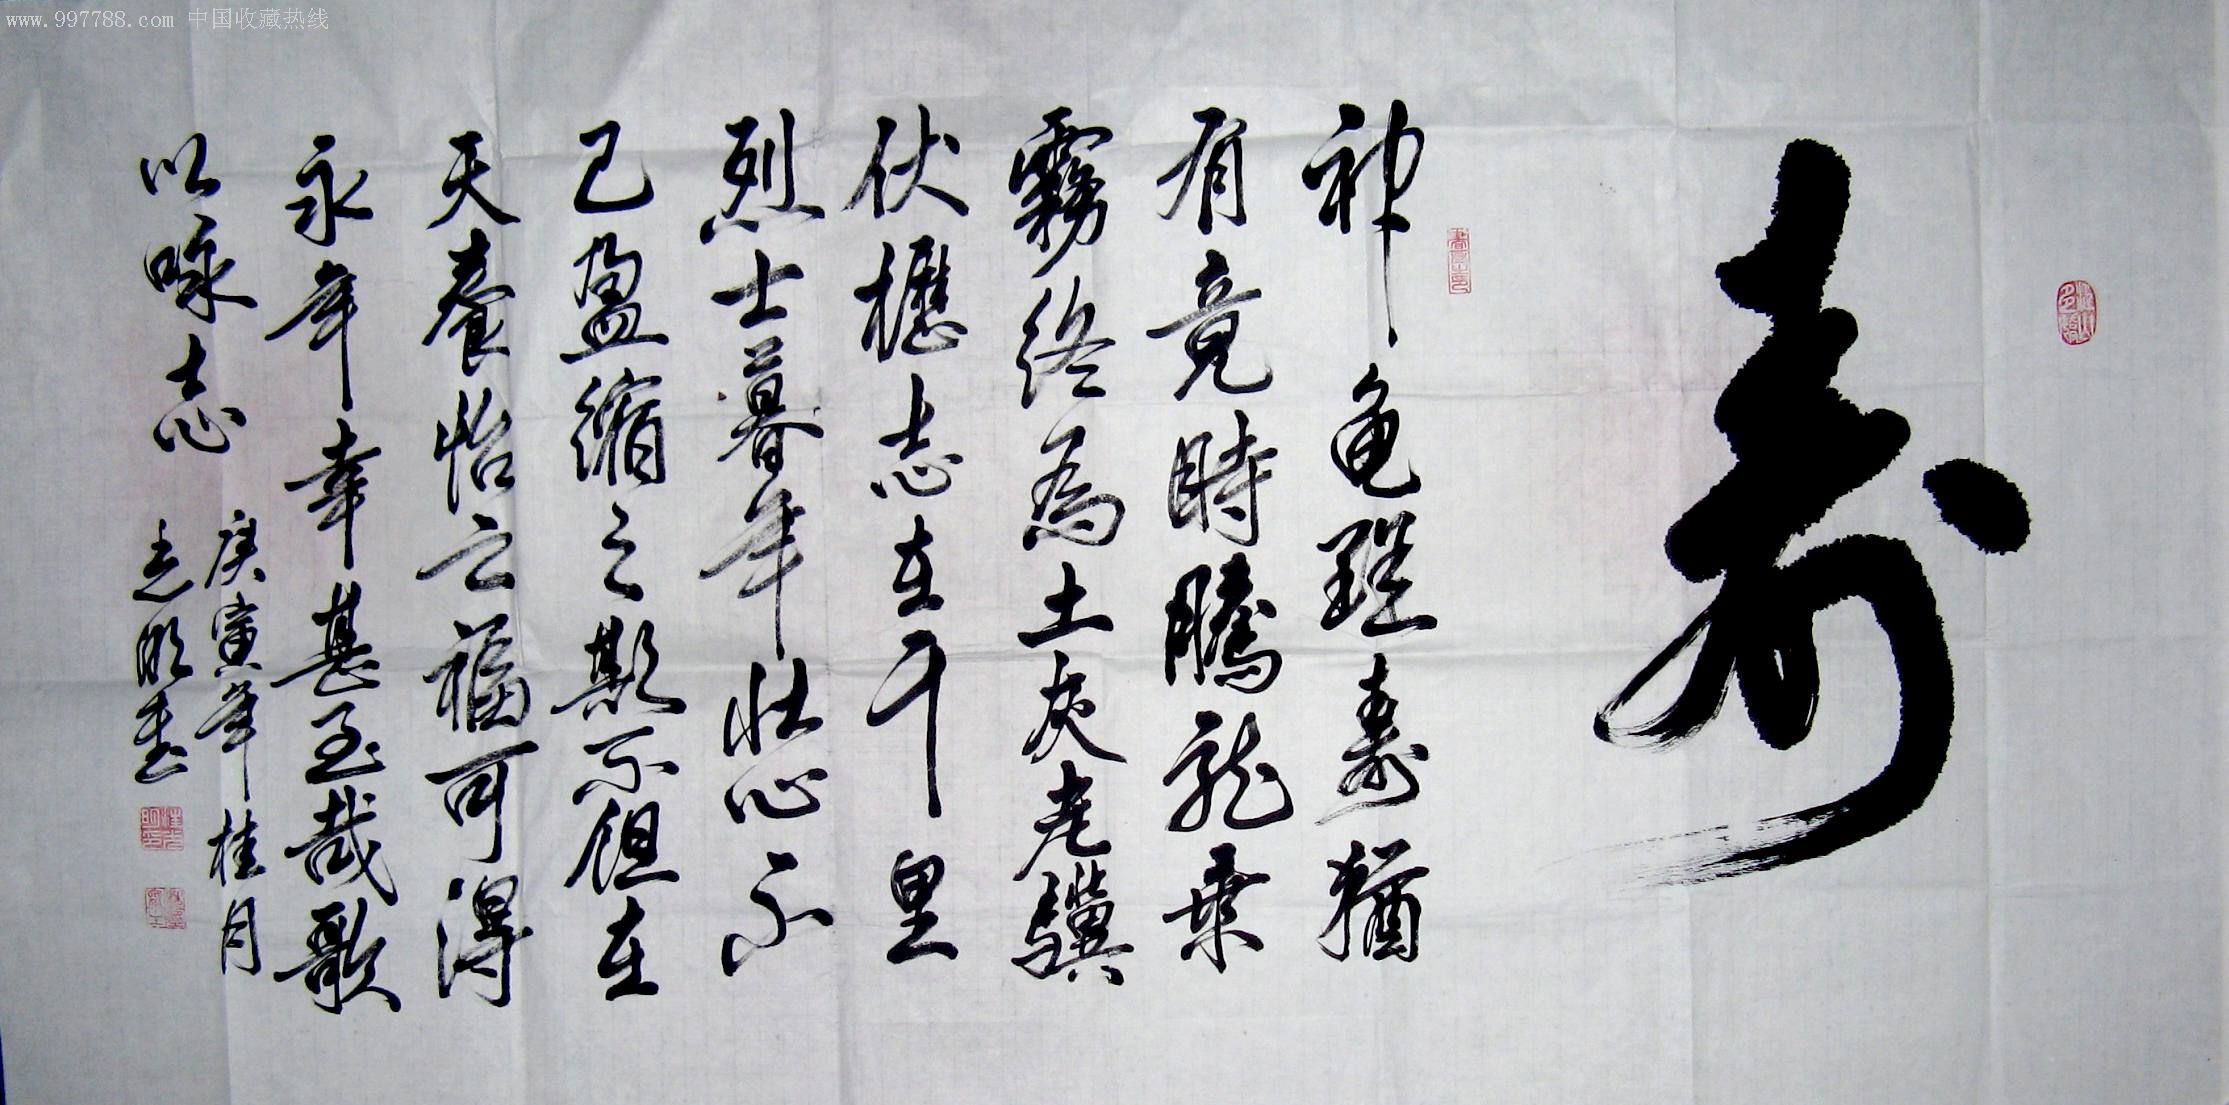 www.997788.com 中国收藏热线
寿
神龟雖寿猶
有竟時騰龍乘
霧終為土灰老驥
伏櫪志在千里
烈士暮年壮心不
已盈縮之期不但在
天養怡之福可得
永年幸甚至哉歌
以咏志
庚寅年桂月
光明書